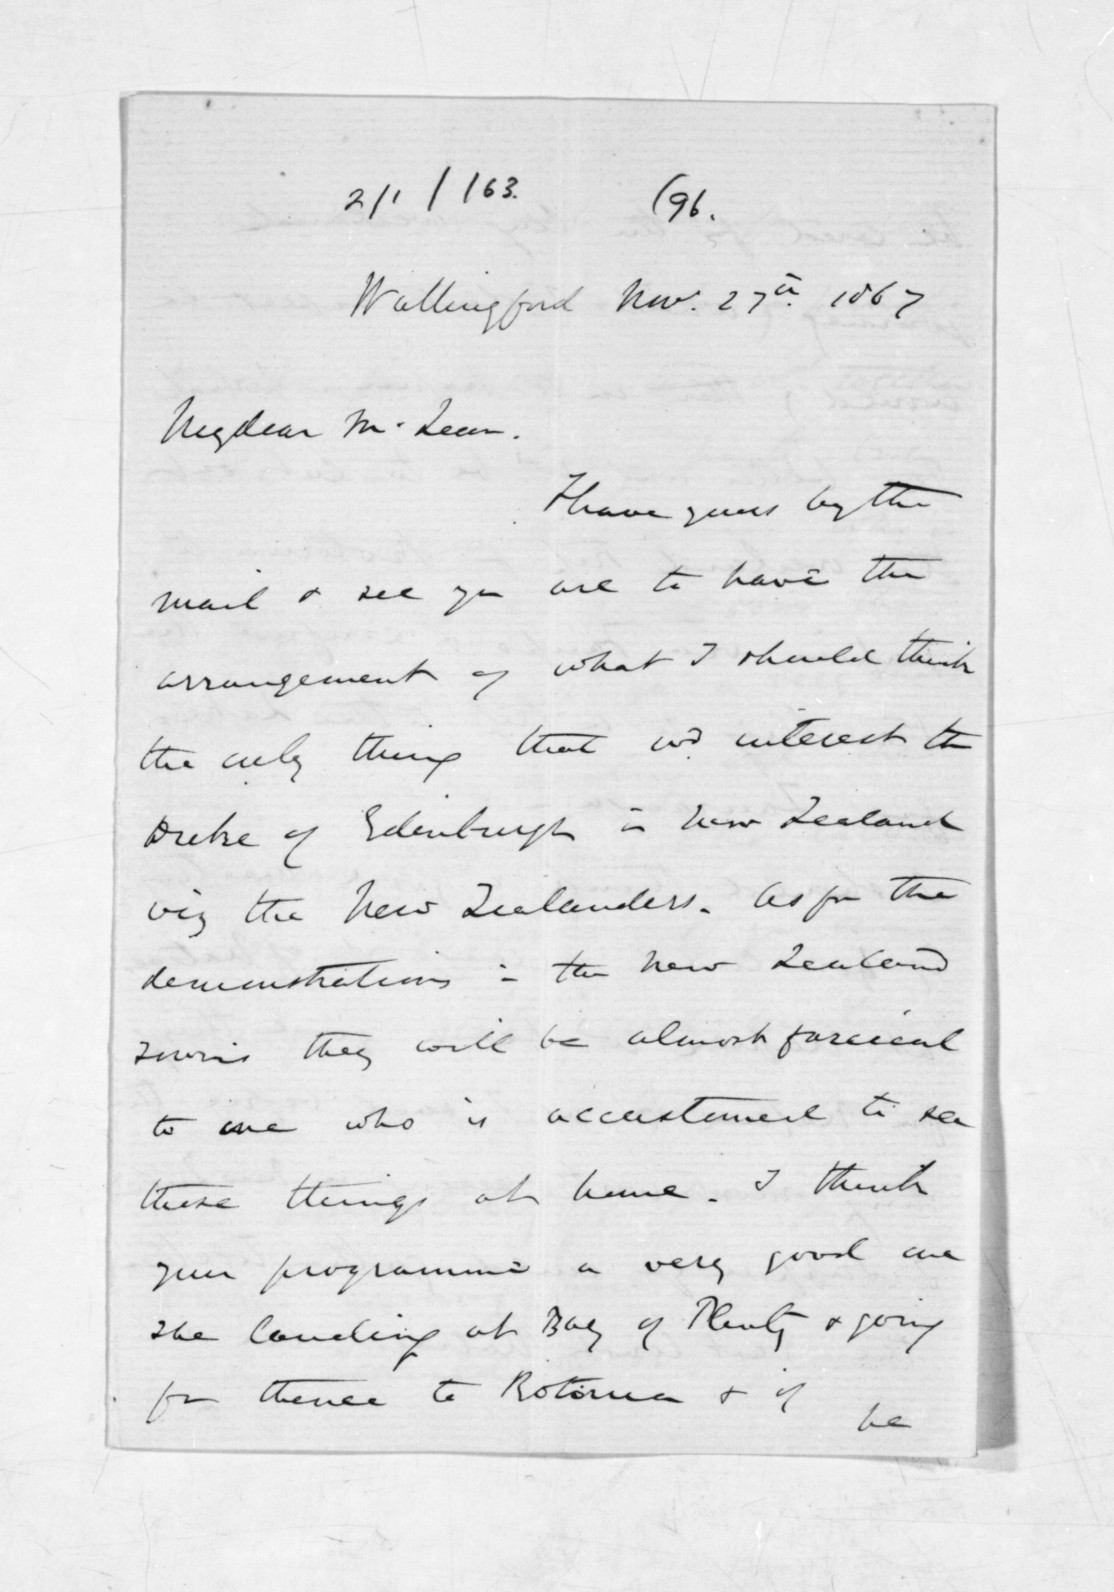 2/1/163. (96.
Wallingford Nov. 27th. 1867
My dear McLean.
I have yours by the
mail & see you are to have the
arrangement of what I should think
the only thing that wd interest the
Duke of Edinburgh in New Zealand
viz the New Zealanders. As for the
demonstrations in the New Zealand
Towns they will be almost farcical
to one who is accustomed to see
these things at home. I think
your programme a very good one
The landing at Bay of Plenty & going
from thence to Rotorua & if
he